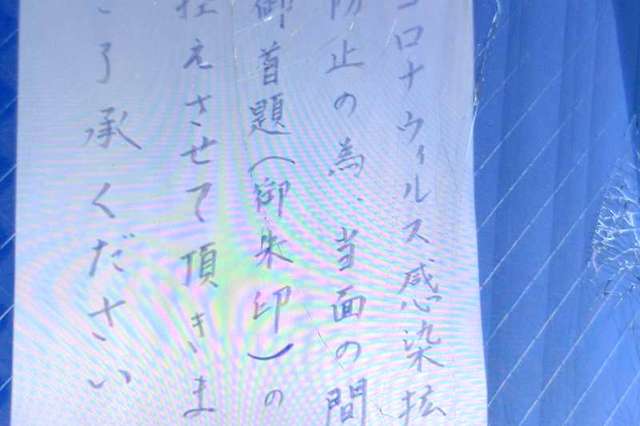 コロナウィルス感染拡
防止の為、当面の間
御首題(御朱印)の
控えさせて頂きま
ご了承ください